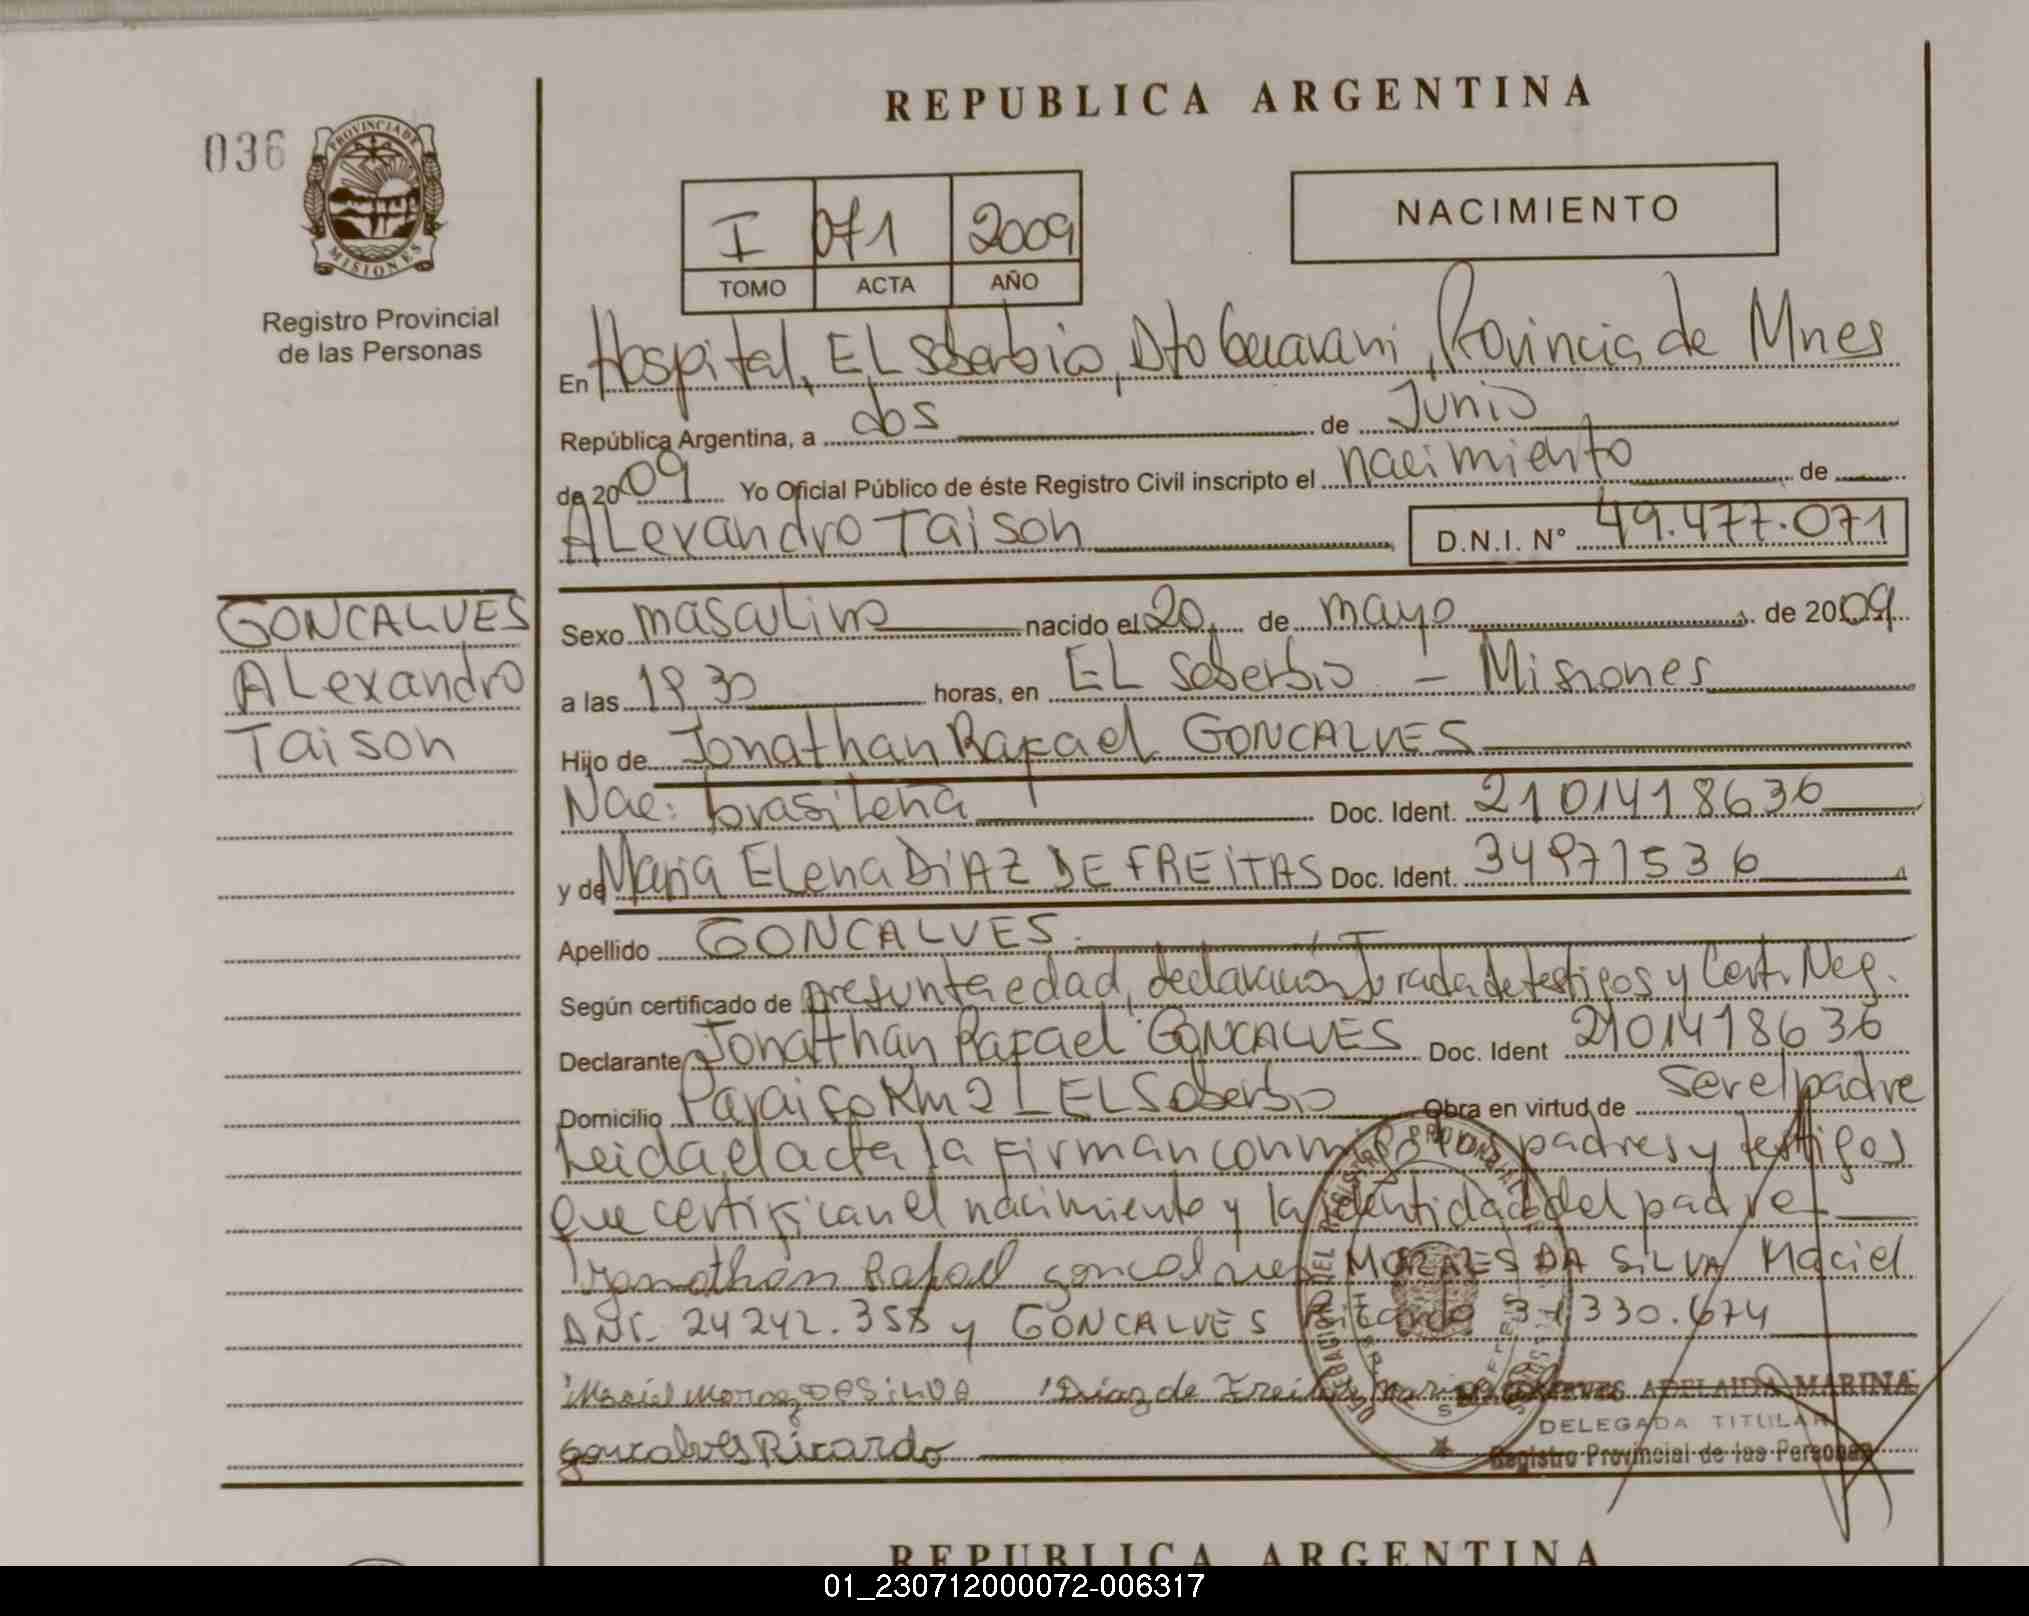 REPUBLICA ARGENTINA
036
PROVINCIA DE
MISIONES
Registro Provincial
de las Personas
I 071 2009
TOMO ACTA AÑO
NACIMIENTO
En Hospital, EL Soberbio, Dto Guarani, Provincia de Mnes
República Argentina, a dos de Junio
de 2009 Yo Oficial Público de éste Registro Civil inscripto el nacimiento de
ALexandro Taison D.N.I. N° 49.477.071
GONCALVES
ALexandro
Taison
Sexo masculino nacido el 20 de mayo de 2009
a las horas, en EL Soberbio - Misiones
Hijo de Jonathan Rafael GONCALVES
Nac: brasileña Doc. Ident. 21014118636
y de Maria ELena DiAZ DE FREiTAS Doc. Ident. 34971536
Apellido GONCALVES
Según certificado de presunta edad, declaración Jurada de testigos y Cert. Neg.
Declarante Jonathan Rafael GONCALVES Doc. Ident
Domicilio Paraiso Km 2 - EL Soberbio Obra en virtud de ser el padre
Leida el acta la firman conmigo los padres y testigos
que certifican el nacimiento y la identidad del padre
Jonathan Rafael goncalves MORAES DA SiLVA Maciel
DNI. 24242.358 y GONCALVES Ricardo 31.330.674
Maciel Moraes DA SiLVA Diaz de Freitas Maria
goncalves Ricardo
ADELAIDA MARINA
DELEGADA TITULAR
Registro Provincial de las Personas
REPUBLICA ARGENTINA
01_230712000072-006317